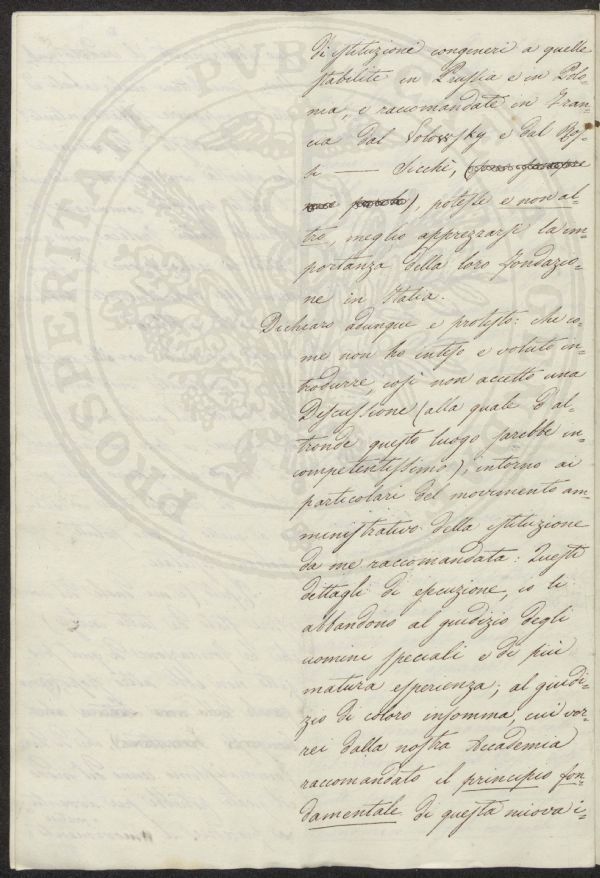 di istituzioni congeneri a quelle
stabilite in Prussia e in Polo=
nia, e raccomandate in Fran=
cia dal Volowsky e dal Ros=
si — Sicchè,
potesse e non al=
tro, meglio apprezzarsi la im=
portanza della loro fondazio=
ne in Italia.
Dichiaro adunque e protesto: che co=
me non ho inteso e voluto in=
trodurre, così non accetto una
Discussione (alla quale d'al=
tronde questo luogo sarebbe in=
competentissimo), intorno ai
particolari del movimento am=
ministrativo della istituzione
da me raccomandata: Questi
dettagli di esecuzione, io li
abbandono al giudizio degli
uomini speciali e di più
matura esperienza; al giudi=
zio di coloro insomma, cui vor=
rei dalla nostra Accademia
raccomandato il principio fon=
damentale di questa nuova i=
PROSPERITATI PUB